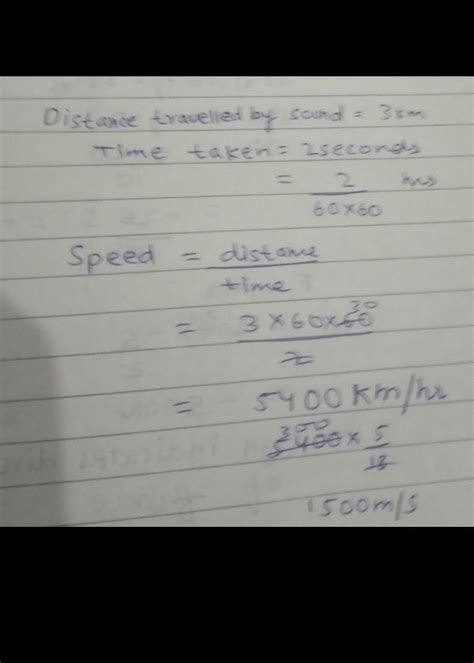 Distance travelled by sound = 3km
Time taken = 2seconds
= 2 hrs
60×60
Speed = distance
time
= 3 × 60 × 60 30
2
= 5400 km/hr
300
5400 × 5
18
1500m/s